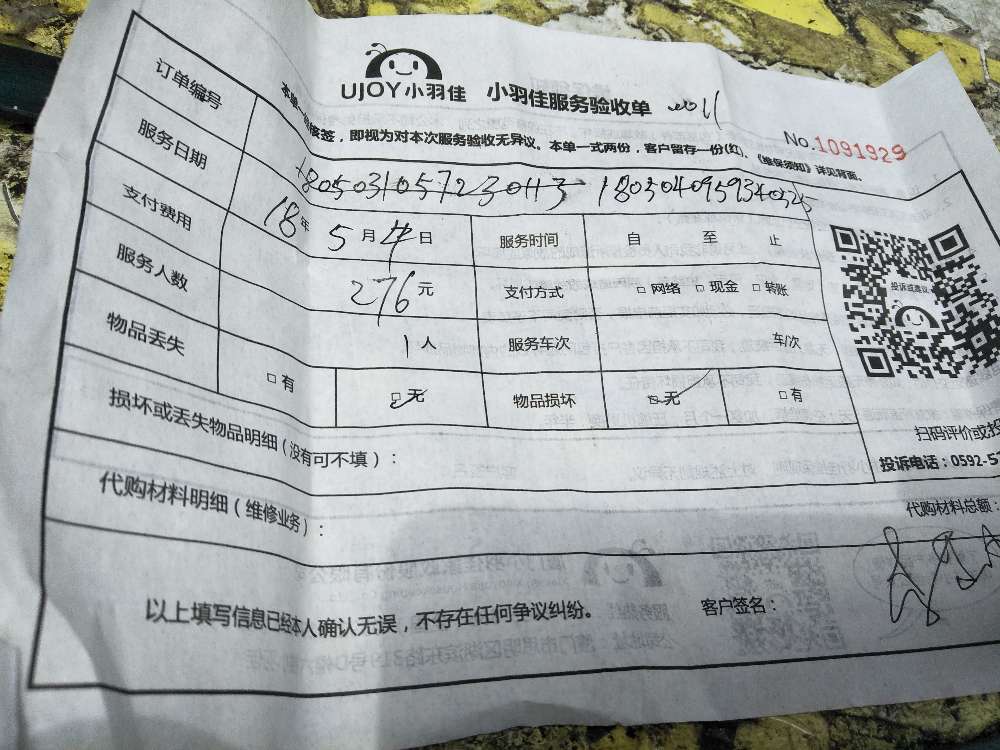 UJOY小羽佳 小羽佳服务验收单
No.1091929
核签，即视为对本次服务验收无异议。本单一式两份，客户留存一份(红)、《维保须知》详见背面。
订单编号 180503105723043 180504095934032
服务日期 18年5月4日 服务时间 自 至 止
支付费用 276元 支付方式 □ 网络 □ 现金 □ 转账
服务人数 1人 服务车次 车次
物品丢失 □ 有 □ 无 物品损坏 □ 无 □ 有
投诉或建议
扫码评价或投
损坏或丢失物品明细（没有可不填）：
投诉电话：0592-5
代购材料明细（维修业务）：
代购材料总额：
以上填写信息已经本人确认无误，不存在任何争议纠纷。 客户签名：